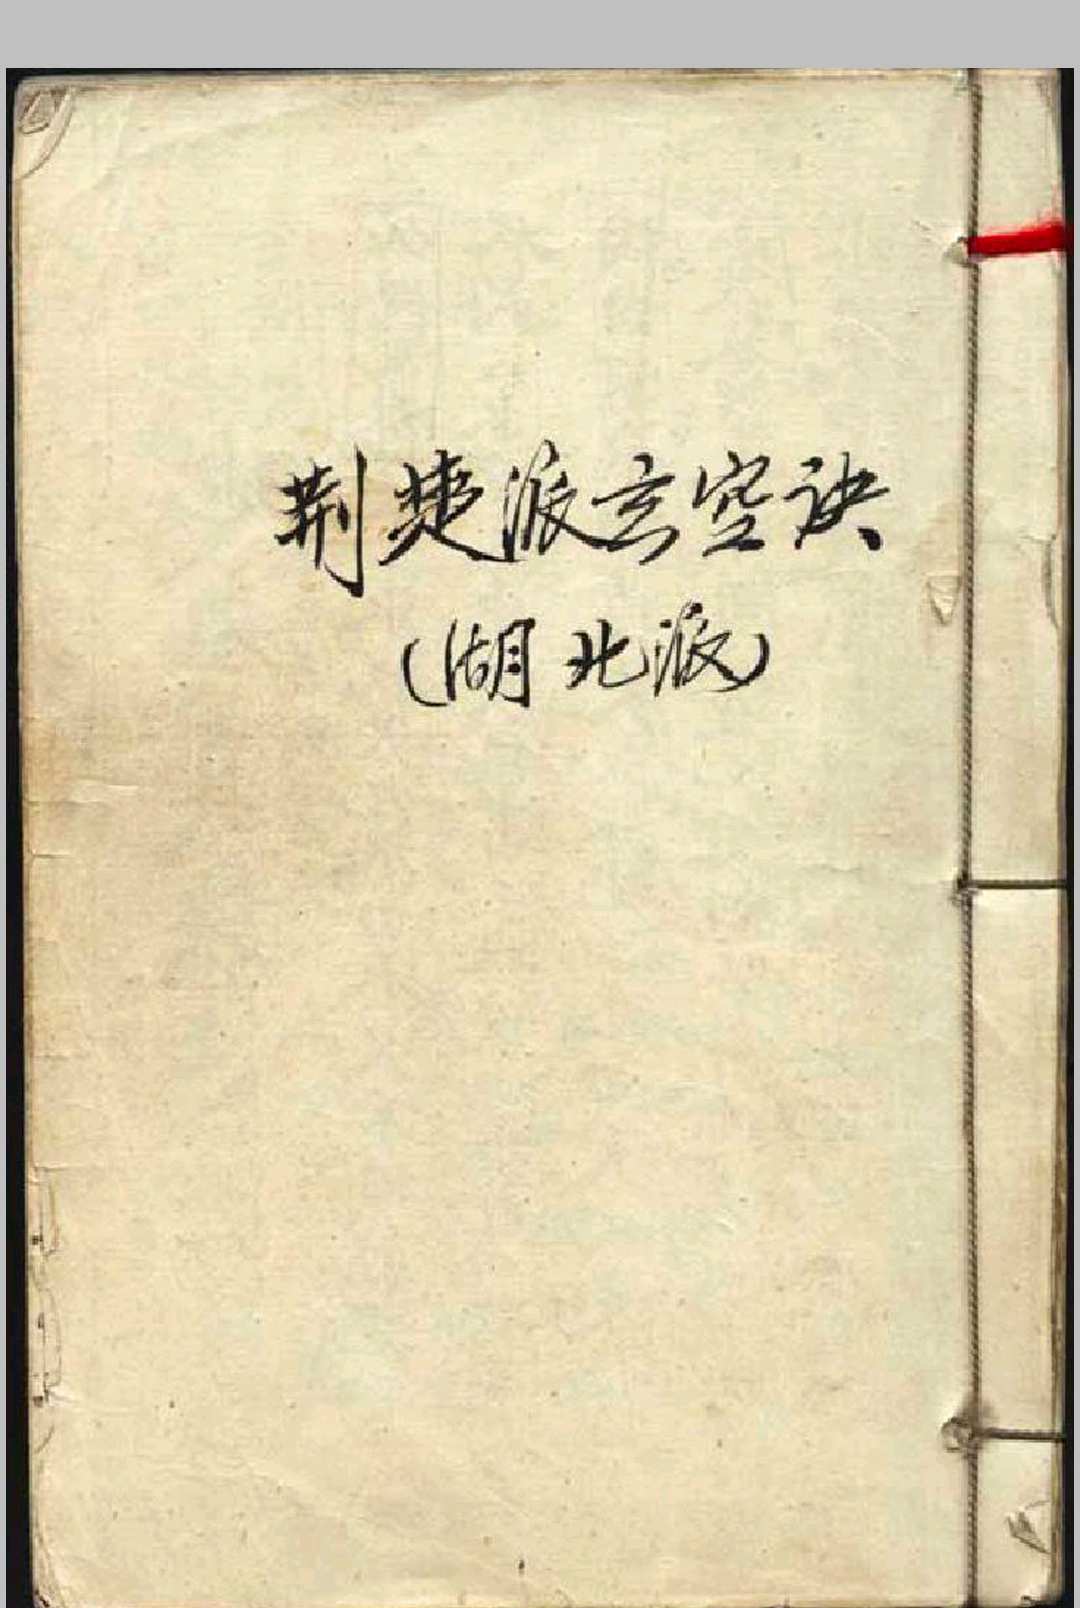 荆楚派玄空诀
(湖北派)